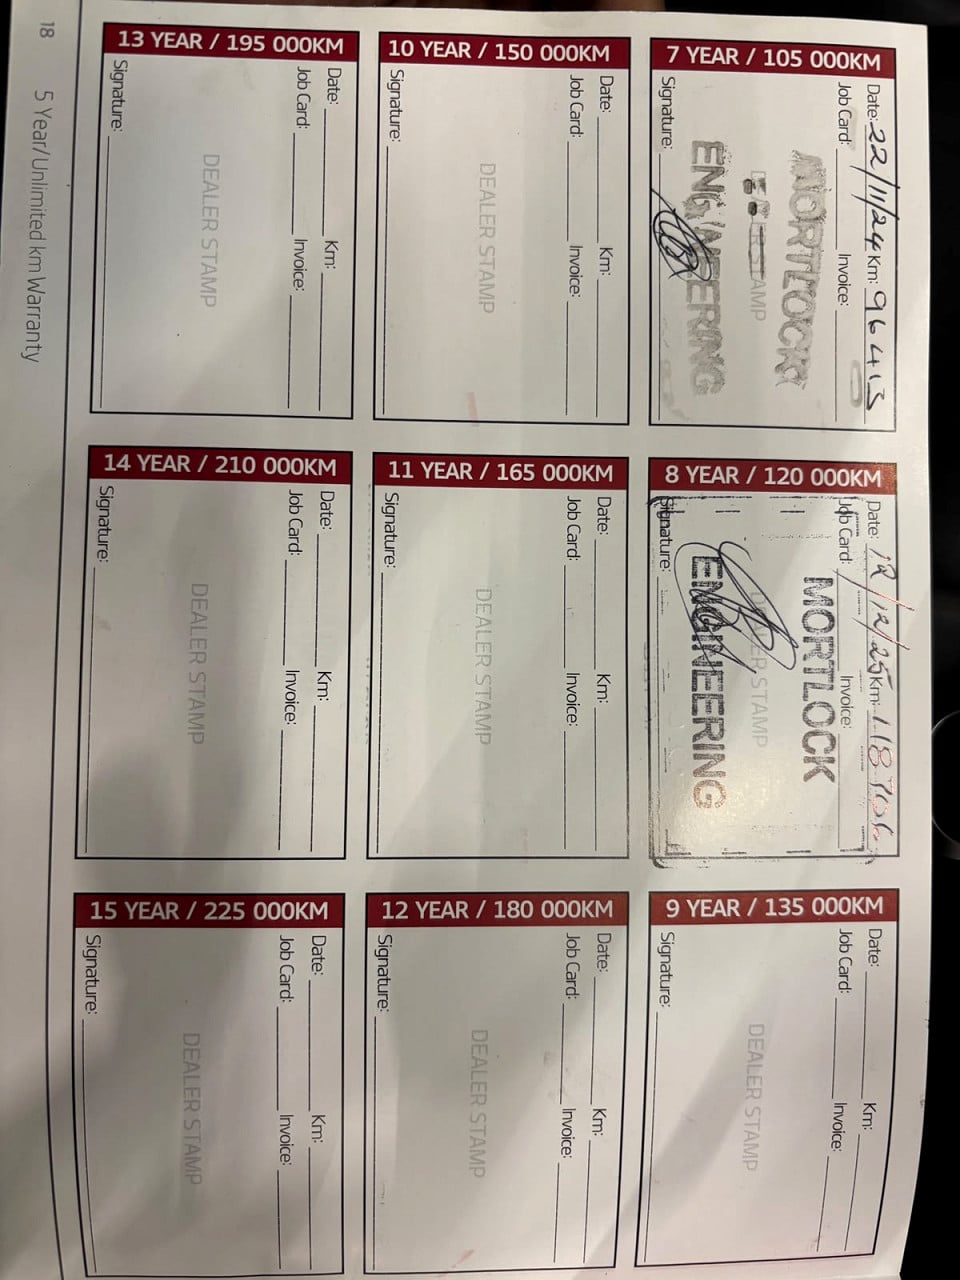 7 YEAR / 105 000KM
Date: 22/11/24 Km: 96 413
Job Card: Invoice:
MORTLOCK
DEALER STAMP
ENGINEERING
Signature:
8 YEAR / 120 000KM
Date: 12/12/25 Km: 118
Job Card: Invoice:
MORTLOCK
DEALER STAMP
ENGINEERING
Signature:
9 YEAR / 135 000KM
Date: Km:
Job Card: Invoice:
DEALER STAMP
Signature:
10 YEAR / 150 000KM
Date: Km:
Job Card: Invoice:
DEALER STAMP
Signature:
11 YEAR / 165 000KM
Date: Km:
Job Card: Invoice:
DEALER STAMP
Signature:
12 YEAR / 180 000KM
Date: Km:
Job Card: Invoice:
DEALER STAMP
Signature:
13 YEAR / 195 000KM
Date: Km:
Job Card: Invoice:
DEALER STAMP
Signature:
14 YEAR / 210 000KM
Date: Km:
Job Card: Invoice:
DEALER STAMP
Signature:
15 YEAR / 225 000KM
Date: Km:
Job Card: Invoice:
DEALER STAMP
Signature:
18 5 Year/Unlimited km Warranty